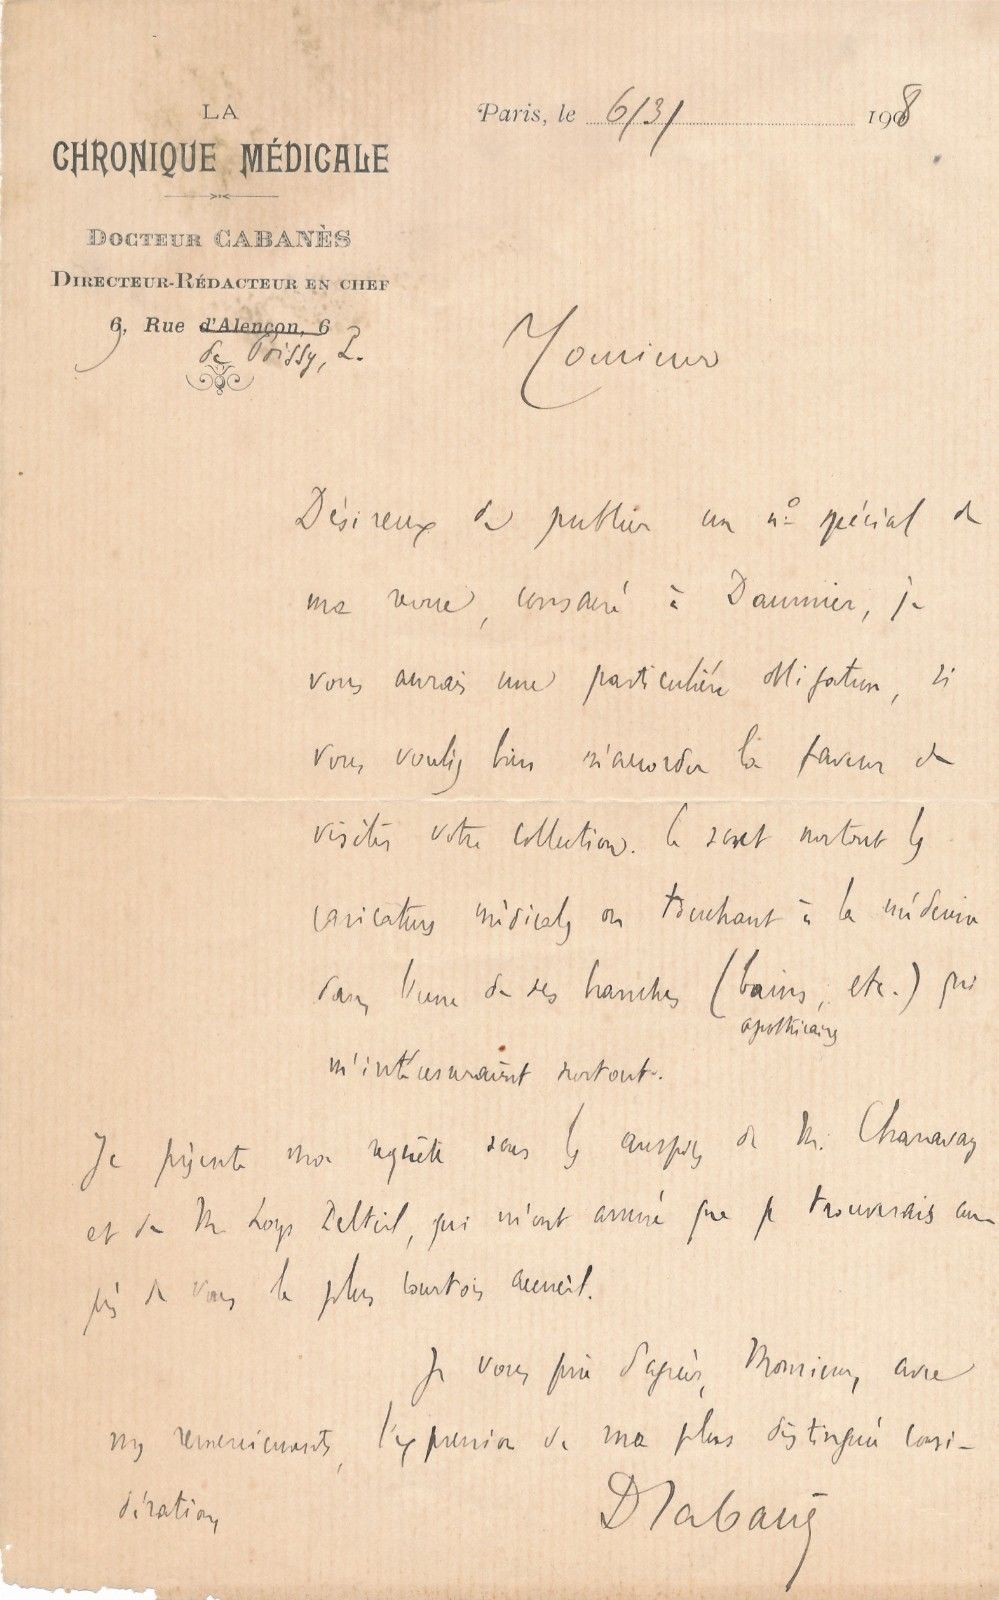 LA
CHRONIQUE MÉDICALE
DOCTEUR CABANÈS
DIRECTEUR-RÉDACTEUR EN CHEF
6, Rue d'Alençon, 6
de Poissy, 2.
Paris, le 6/3/ 1908
Monsieur
Désireux de publier un nº spécial de
ma revue, consacré à Daumier, je
vous aurais une particulière obligation, si
vous vouliez bien m'accorder la faveur de
visiter votre collection. Ce sont surtout les
caricatures médicales ou touchant à la médecine
dans l'une de ses branches (bains, etc.) qui
apothicaires
m'intéresseraient surtout.
Je présente ma requête sous les auspices de M. Charavay
et de M. Loys Delteil, qui m'ont assuré que je trouverais au-
près de vous le plus courtois accueil.
Je vous prie d'agréer, Monsieur, avec
mes remerciements, l'expression de ma plus distinguée consi-
dération,
Dr Cabanès